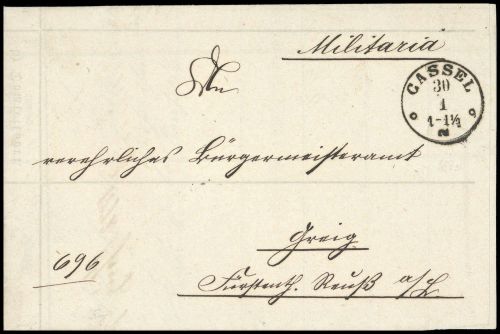 Militaria
CASSEL
30
1
1-1½
An
verehrliches Bürgermeisteramt
Greiz
696
Fürstenth. Reuß a/L